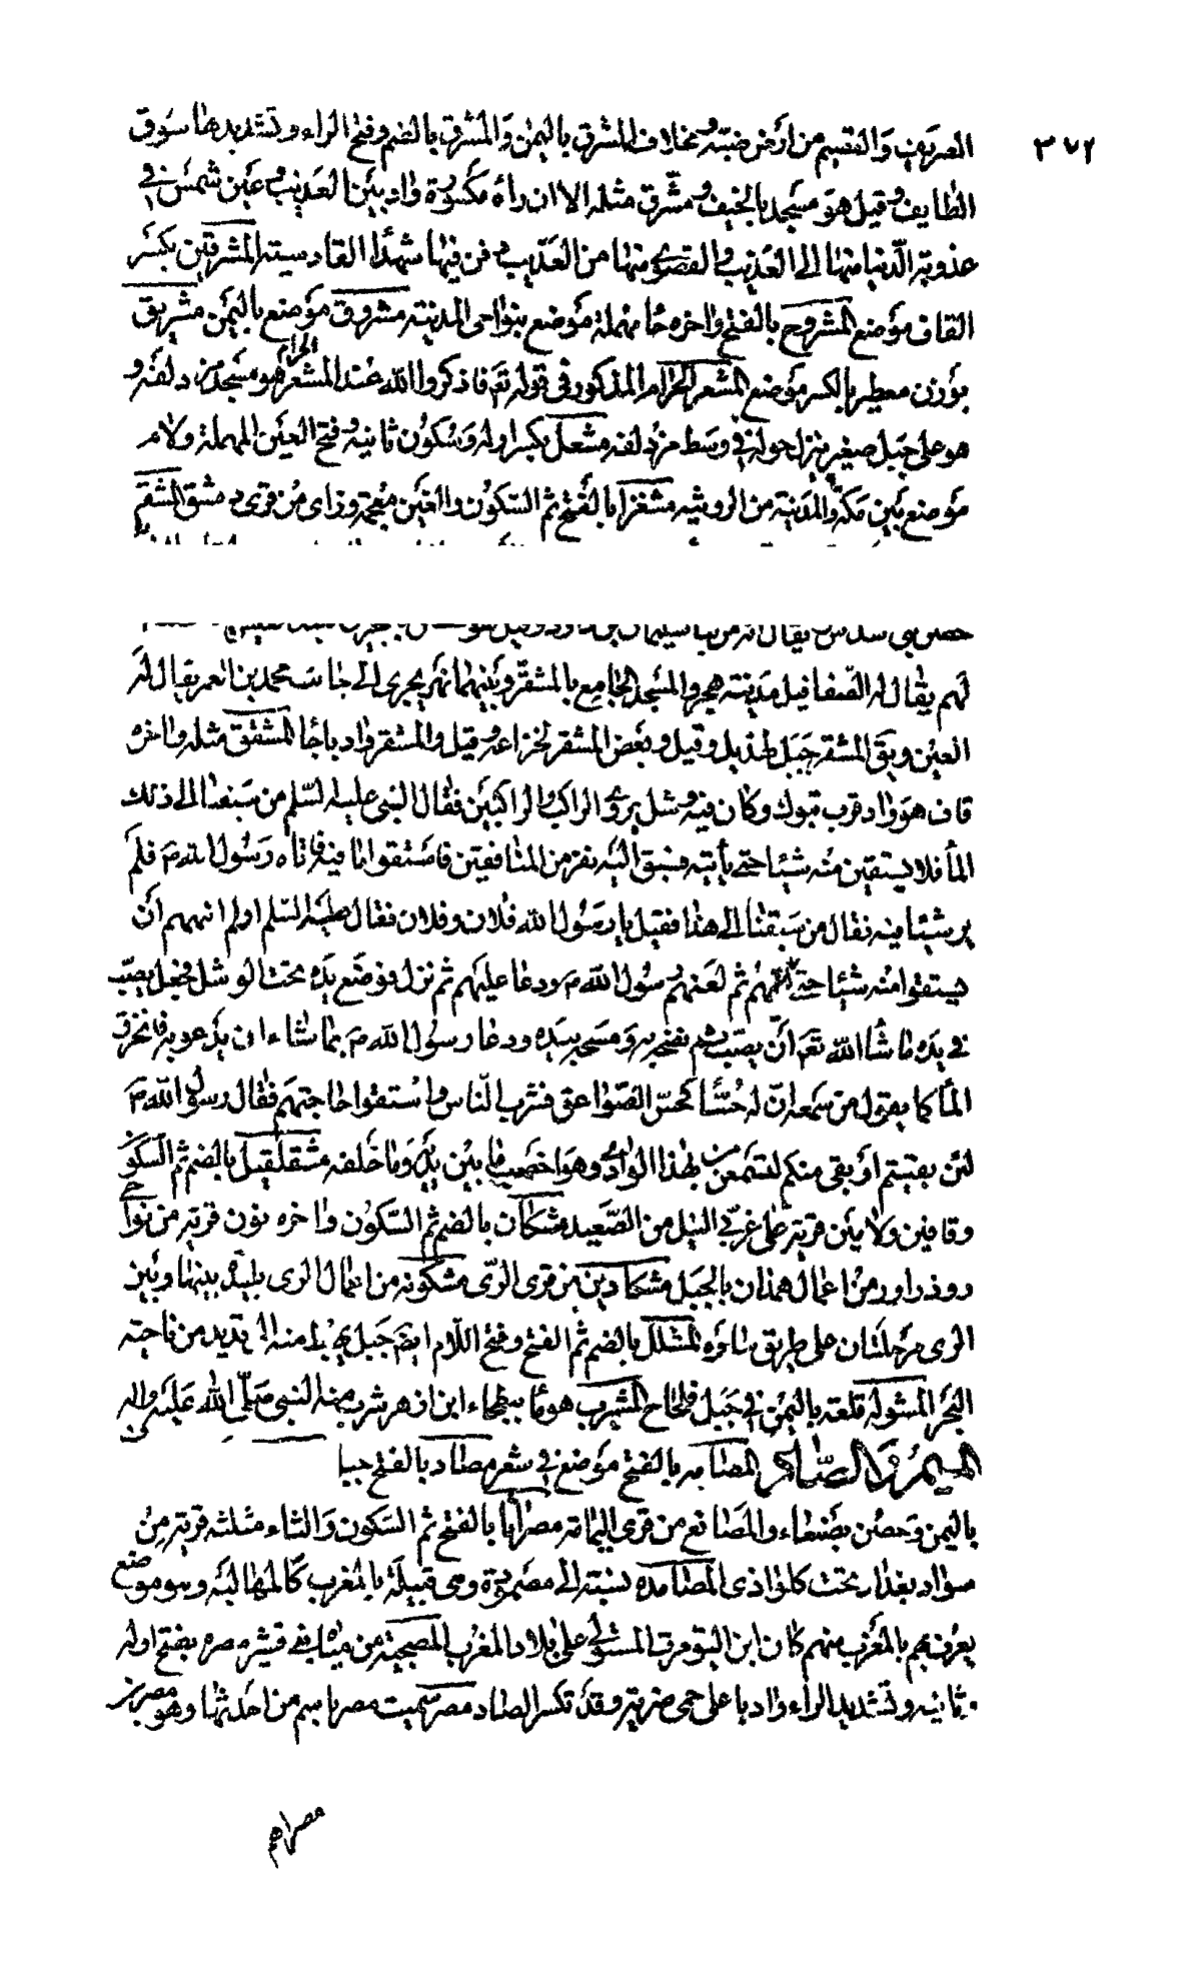 ٣٧٢
الصريف والقصيم من أرض ضبة ومخلاف المشرق باليمن والمشرق بالضم وفتح الراء وتشديدها سوق
الطايف وقيل هو مسجد بالخيف ومشرق مثله الا ان راه مكسورة واد بين العذيب وعين شمس في
عذوبة الدنيا منها الى العذيب والقصوى منها من العذيب ومن فيها شهدا القادسية المشرقين بكسر
القاف موضع المشروح بالفتح واخره حا مهملة موضع بنواحى المدينة مشروق موضع باليمن مشريق
بوزن معطير بالكسر موضع المشعر الحرام المذكور فى قوله تع فاذكروا الله عند المشعر الحرام هو مسجد مزدلفة و
هو على جبل صغير ينزل حوله فى وسط مزدلفه مشعل بكسر اوله وسكون ثانيه وفتح العين المهملة ولام
موضع بين مكة والمدينة من الرويثه مشغرا بالفتح ثم السكون والغين معجمة وزاى من قرى دمشق المشقر
لهم يقال له الصفا قبل مدينة هجر والمسجد الجامع بالمشقر وبينهما نهر يجرى الى جانب محمد بن الغمر يقال له
العين وبق المشقر جبل لهذيل وقيل وبعض المشقر لخزاعه وقيل والمشقر واد باجا المشقق مثله واخره
قاف هو واد قرب تبوك وكان فيه وشل يروى الراكب والراكبين فقال النبى عليه السلم من سبقنا الى ذلك
المأ فلا يستقين منه شيئا حتى يأتيه فسبق اليه نفر من المنافقين فاستقوا ما فيه فاتاه رسول الله ص فلم
ير شيئا فيه فقال من سبقنا الى هذا فقيل يا رسول الله فلان وفلان فقال عليه السلم اولم انههم أن
يستقوا منه شيئا حتى اتيهم ثم لعنهم رسول الله ص ودعا عليهم ثم نزل فوضع يده تحت الوشل فجعل يصب
فى يده ما شأ الله تع أن يصب ثم نضحه به ومسحه بيده ودعا رسول الله ص بما شاء ان يدعو به فانخرق
المأ كما يقول من سمعه ان له حسا كحس الصواعق فشرب الناس واستقوا حاجتهم فقال رسول الله ص
لئن بقيتم او بقى منكم لتسمعن بهذا الوادى وهو اخصب ما بين يديه وما خلفه مشقلقيل بالضم ثم السكون
وقافين ولامين قرية على غربى النيل من الصعيد مشكان بالضم ثم السكون واخره نون قرية من نواحى
روذراور من اعمال همذان بالجبل مشكادين من قرى الرى مشكونه من اعمال الرى بليدة بينها وبين
الرى مرحلتان على طريق ساوه المشلل بالضم ثم الفتح وفتح اللام ايضم جبل يهبط منه الى قديد من ناحية
البحر المشوله قلعة باليمن فى جبل قلحاح المشيرب هو ما ببطحاء ابن ازهر شرب منه النبى صلى الله عليه واله
الميم والصاد المصامه بالفتح موضع فى شعر مصاد بالفتح جبا
باليمن وحصن بصنعاء والمصانع من قرى اليمامة مصراثا بالفتح ثم السكون والثاء مثلثه قرية من
سواد بغداد تحت كلواذى المصامده نسبة الى مصمودة وهى قبيلة بالمغرب كالمهالبه وهو موضع
يعرف بهم بالمغرب منهم كان ابن التومرت المستولى على بلاد المغرب المصيحية من مياه بنى قشير مصره بفتح اوله
وثانيه وتشديد الراء واد باعلى حمى ضرية وقد تكسر الصاد مصر سميت مصر باسم من احدثها وهو مصر بن
مصرايم